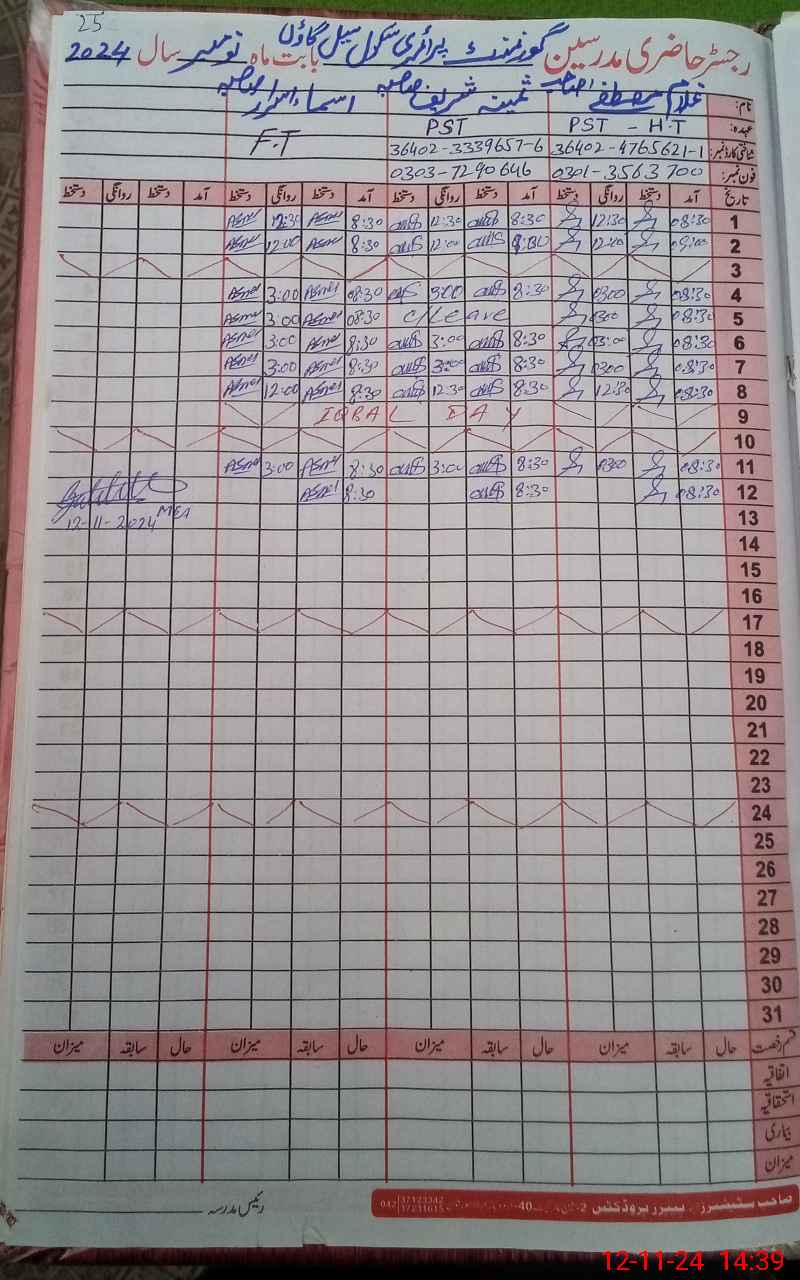 25
رجسٹر حاضری مدرسین گورنمنٹ پرائمری سکول سیل گاؤں بابت ماہ نومبر سال 2024
نام: غلام مصطفےٰ صاحب ثمینہ شریف صاحبہ اسماء اسرار صاحبہ
عہدہ: PST - H.T PST F.T
شناختی کارڈ نمبر: 36402-4765621-1 36402-3339657-6
فون نمبر: 0301-3563700 0303-7290646
تاریخ آمد دستخط روانگی دستخط آمد دستخط روانگی دستخط آمد دستخط روانگی دستخط آمد دستخط روانگی دستخط
1 08:30 12:30 8:30 12:30 8:30 Asma 12:30 Asma
2 09:00 12:00 12:00 8:30 Asma 12:00 Asma
3
4 08:30 0300 8:30 300 08:30 Asma 3:00 Asma
5 08:30 0300 C/Leave 08:30 Asma 3:00 Asma
6 08:30 03:00 8:30 3:00 8:30 Asma 3:00 Asma
7 08:30 0300 8:30 3:00 8:30 Asma 3:00 Asma
8 08:30 12:30 8:30 12:30 8:30 Asma 12:00 Asma
9 IQBAL DAY
10
11 08:30 0300 8:30 3:00 8:30 Asma 3:00 Asma
12 08:30 8:30 8:30 Asma
12-11-2024 MEA
13
14
15
16
17
18
19
20
21
22
23
24
25
26
27
28
29
30
31
قسم رخصت حال سابقہ میزان حال سابقہ میزان حال سابقہ میزان حال سابقہ میزان
اتفاقیہ
استحقاقیہ
بیماری
میزان
رئیس مدرسہ
صاحب سٹیشنرز پیپر پروڈکٹس
042 37123342
12-11-24 14:39